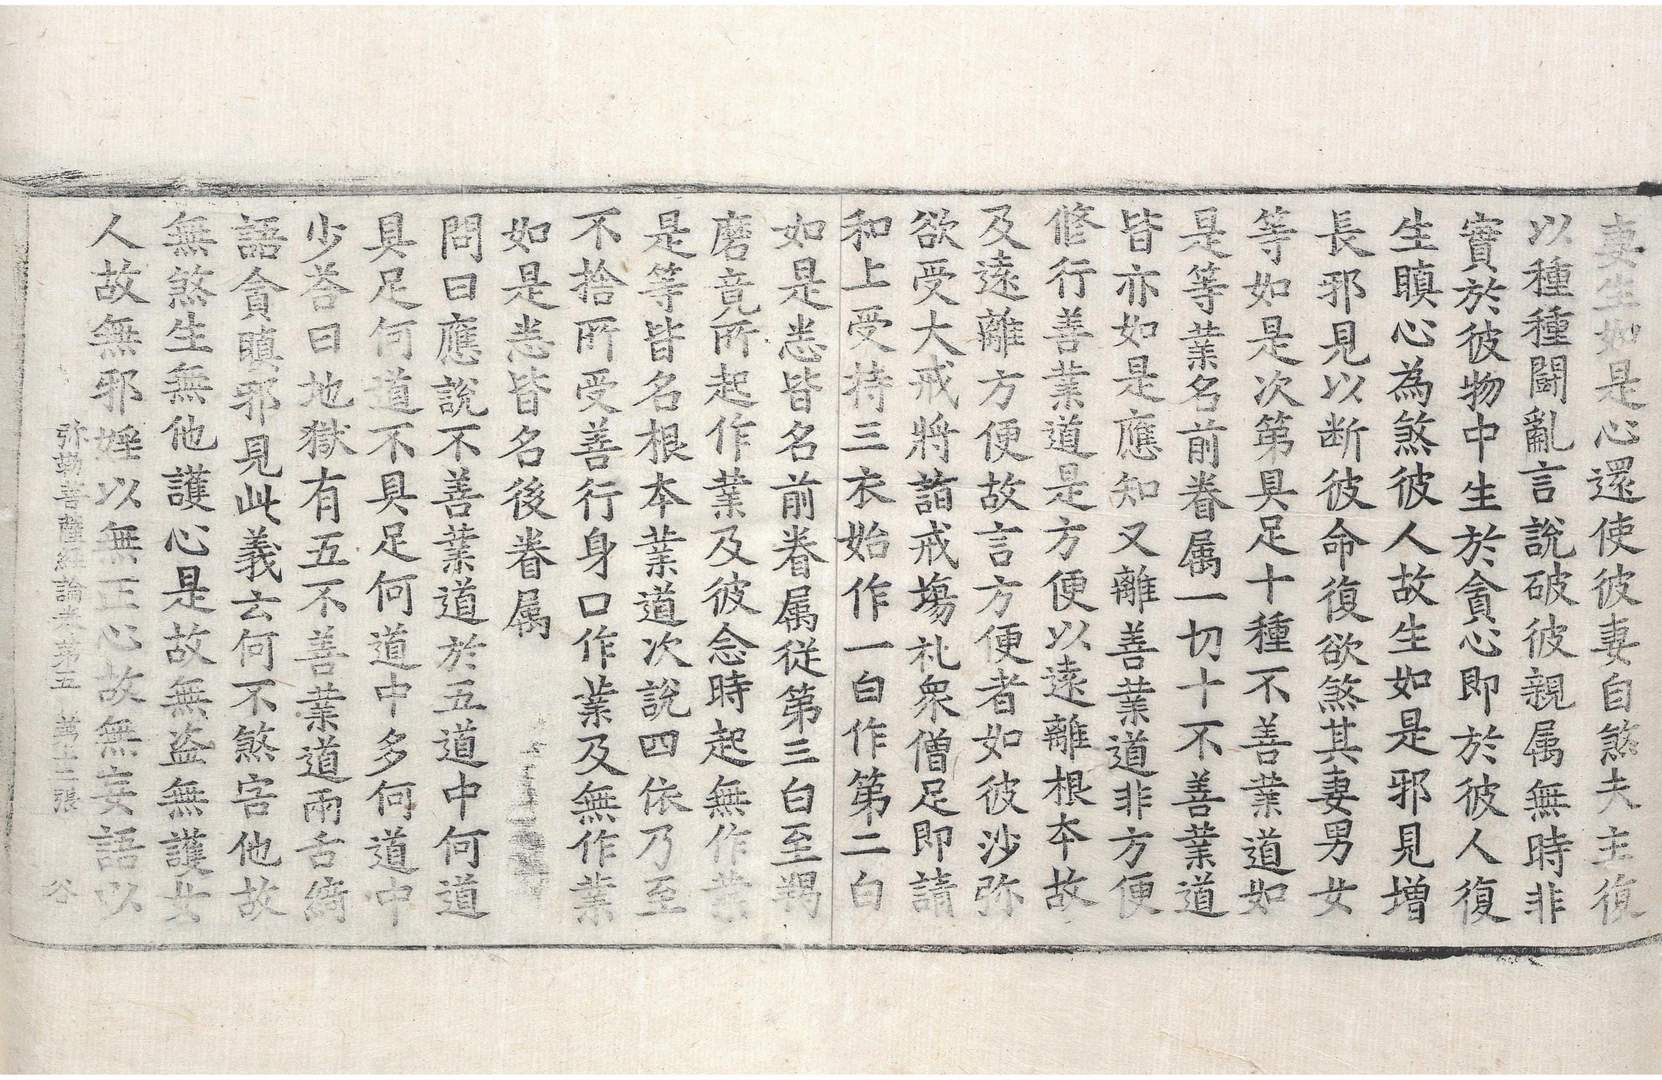 妻生如是心還使彼妻自煞夫主復
以種種鬪亂言說破彼親属無時非
實於彼物中生於貪心即於彼人復
生瞋心為煞彼人故生如是邪見增
長邪見以断彼命復欲煞其妻男女
等如是次第具足十種不善業道如
是等業名前眷属一切十不善業道
皆亦如是應知又離善業道非方便
修行善業道是方便以遠離根本故
及遠離方便故言方便者如彼沙弥
欲受大戒將詣戒塲礼衆僧足即請
和上受持三衣始作一白作第二白
如是悉皆名前眷属従第三白至羯
磨竟所起作業及彼念時起無作業
是等皆名根本業道次說四依乃至
不捨所受善行身口作業及無作業
如是悉皆名後眷属
問曰應說不善業道於五道中何道
具足何道不具足何道中多何道中
少荅曰地獄有五不善業道兩舌綺
語貪瞋邪見此義云何不煞害他故
無煞生無他護心是故無盗無護女
人故無邪婬以無正心故無妄語以
弥勒菩薩経論卷第五 第十二張 谷